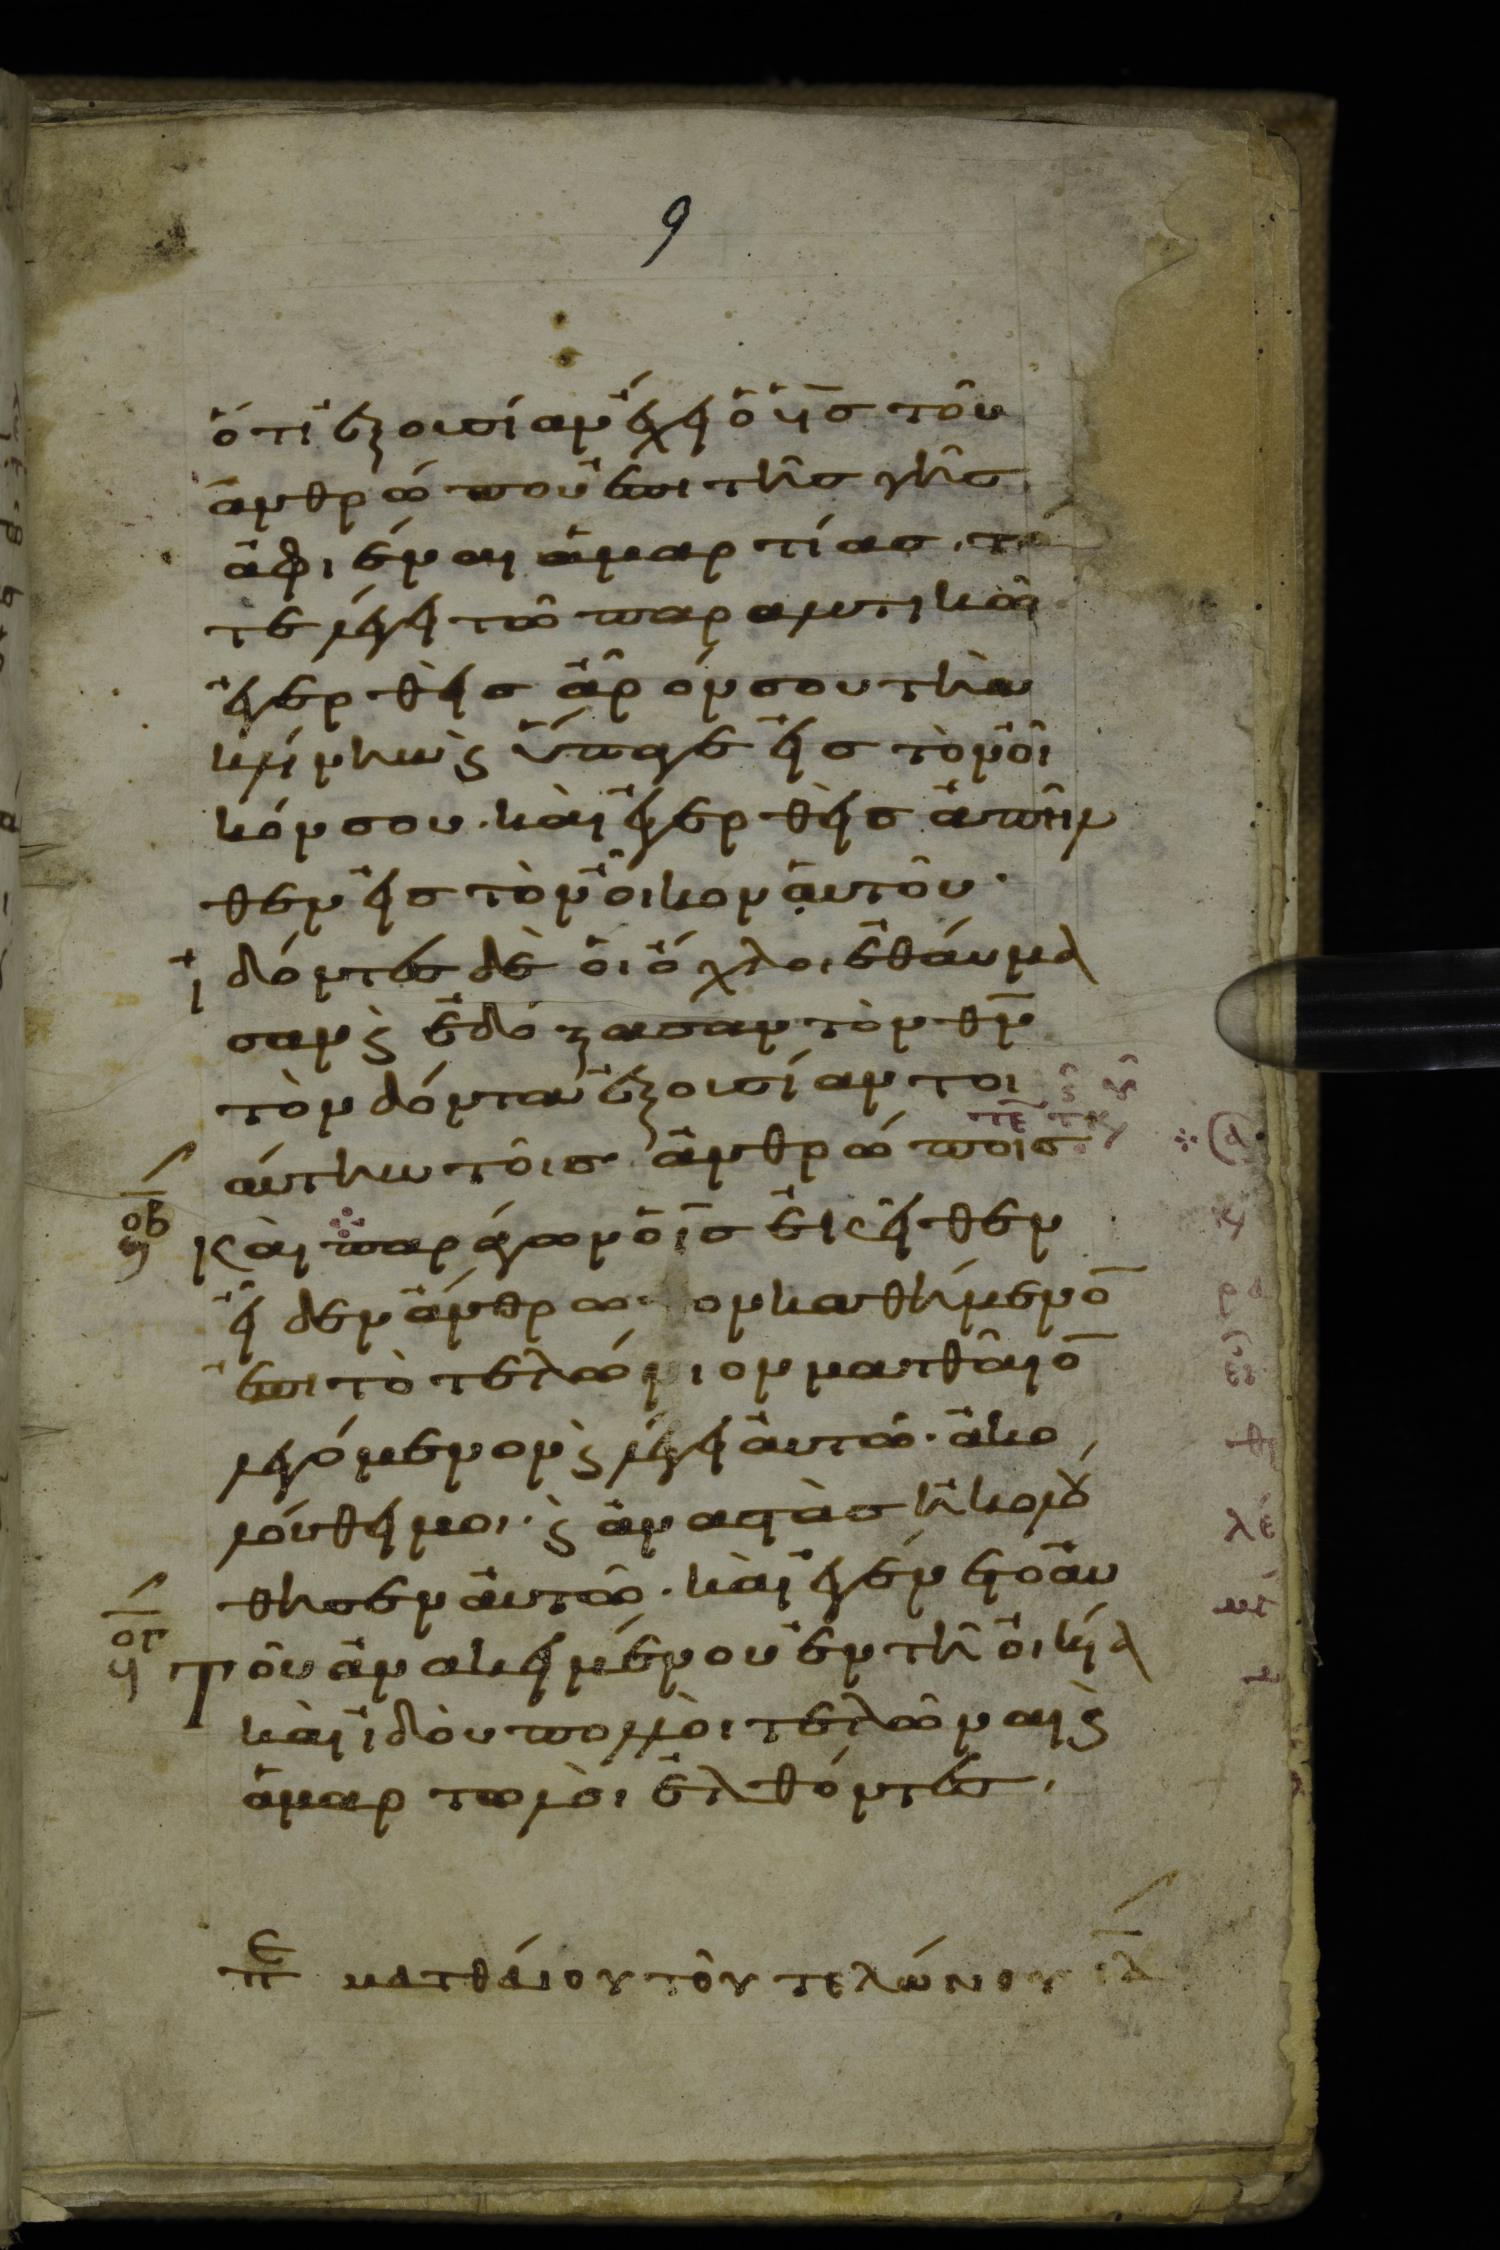 9
ὅτι ἐξουσίαν ἔχει ὁ υ̅ς̅ τοῦ
ἀνθρώπου ἐπι τῆς γῆς
ἀφιέναι ἁμαρτίας. τό
τε λέγει τῶ παραλυτικῶ
ἐγερθεὶς ἆρόν σου τὴν
κλίνην ϗ ὕπαγε εἰς τὸν οἶ
κόν σου. καὶ ἐγερθεὶς ἀπῆλ
θεν εἰς τὸν οἶκον αὐτοῦ.
ἰδόντες δὲ οἱ ὄχλοι ἐθαύμα
σαν ϗ ἐδόξασαν τὸν θ̅ν̅
τὸν δόντα ἐξουσίαν τοι
αύτην τοῖς ἀνθρώποις
ο̅β̅ Καὶ παράγων ὁ ι̅ς̅ ἐκεῖθεν
εἶδεν ἄνθρω ον καθήμενο̅
ἐπι τὸ τελώνιον ματθαῖο̅
λεγόμενον ϗ λέγει αὐτῶ. ἀκο
λούθει μοι. ϗ ἀναστὰς ἠκολού
θησεν αὐτῶ. καὶ ἐγένετο αυ
ο̅γ̅ Τοῦ ἀνακειμένου ἐν τῆ οἰκία
καὶ ἰδοὺ πολλοὶ τελῶναι ϗ
ἁμαρτωλοὶ ἐλθόντες.
πε ματθαίου τοῦ τελώνου ι̅δ̅